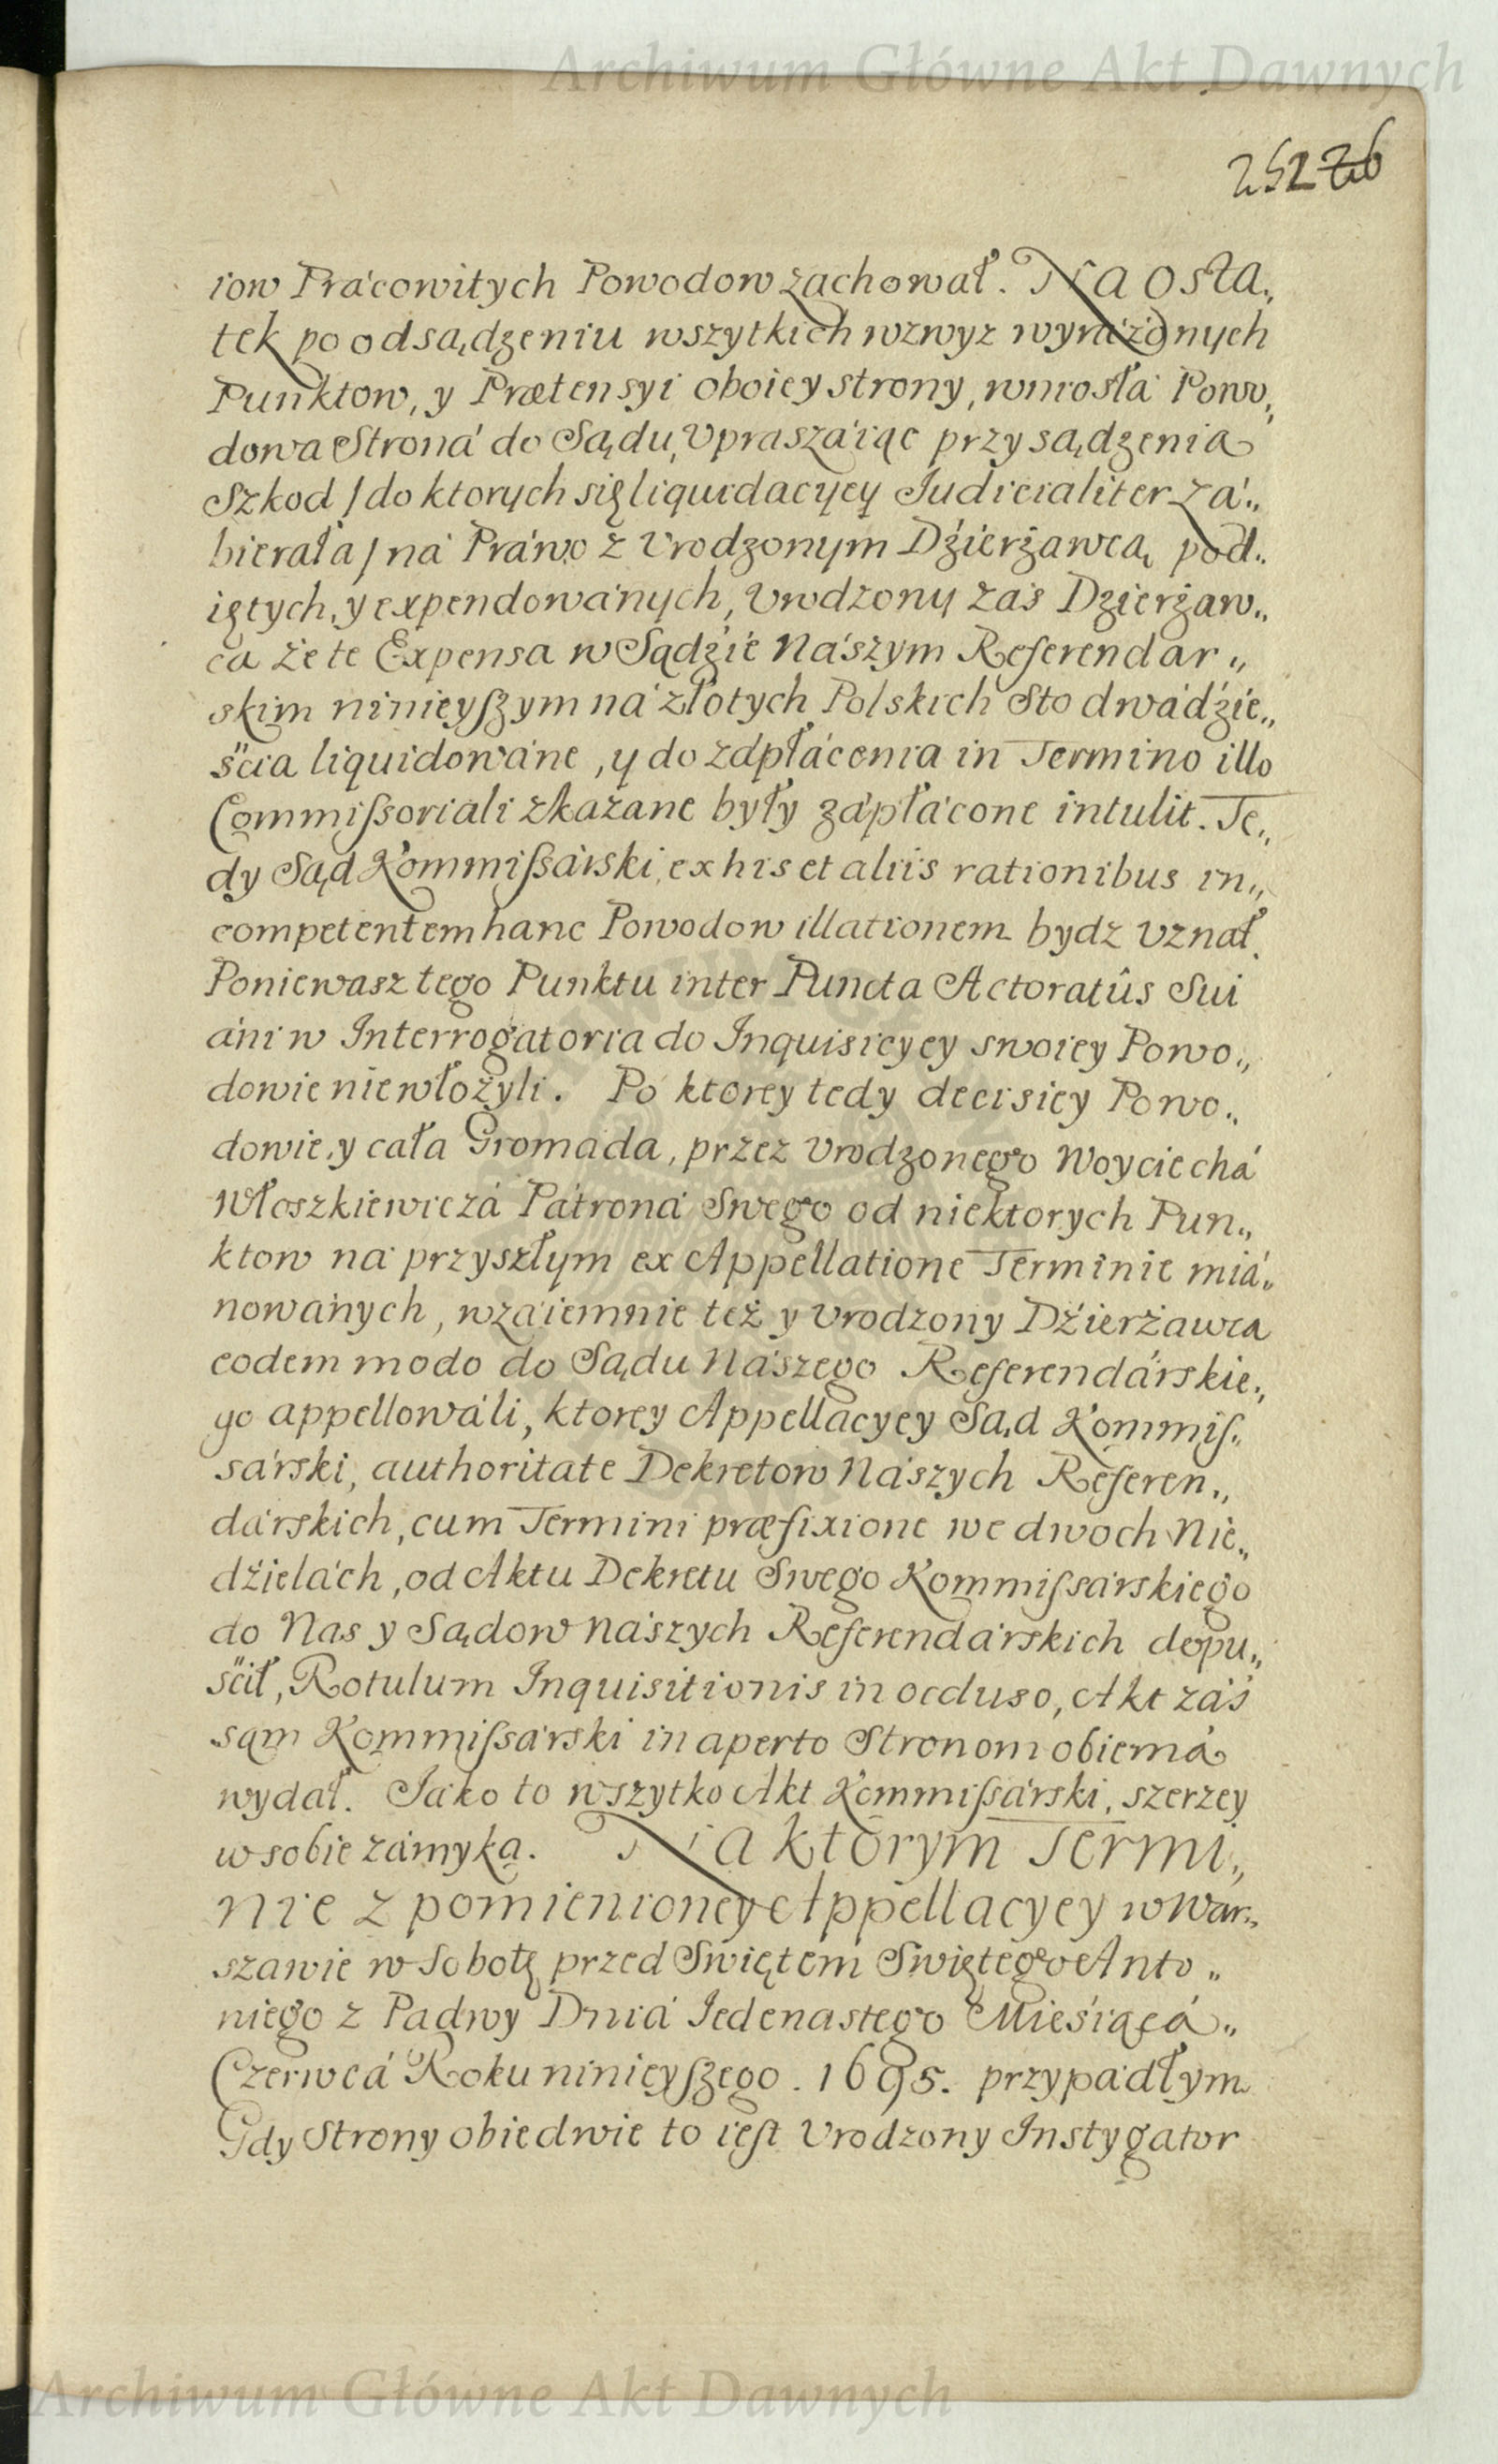 Archiwum Główne Akt Dawnych
252 26
iow Prácowitych Powodow záchował. Na osta„
tek po odsądzeniu wszytkich wzwyz wyráżonych
Punktow, y Prætensyi oboiey strony, wniosła Powo„
dowa Stroná do Sądu, Vpraszáiąc przysądzenia
Szkod / do ktorych się liquidacyey Iudicialiter zá„
bierała / ná Práwo z Vrodzonym Dźierżawcą pod„
iętych, y expendowánych, Vrodzony záś Dzierżaw„
ca że te Expensa w Sądźie Nászym Referendar„
skim ninieyszym ná złotych Polskich Sto dwádźie„
śćia liquidowáne, y do zápłácenia in Termino illo
Commissoriali zkazane były zápłácone intulit. Te„
dy Sąd Kommissárski, ex his et aliis rationibus in„
competentem hanc Powodow illationem bydz Vznał,
Poniewasz tego Punktu inter Puncta Actoratûs Sui
áni w Interrogatoria do Inquisicyey swoiey Powo„
dowie niewłożyli. Po ktorey tedy decisiey Powo„
dowie, y cała Gromáda, przez Vrodzonego Woyciechá
Włoszkiewiczá Pátroná Swego od niektorych Pun„
ktow ná przyszłym ex Appellatione Terminie miá„
nowánych, wzáiemnie też y Vrodzony Dźierżawca
eodem modo do Sądu Nászego Referendárskie„
go appellowáli, ktorey Appellacyey Sąd Kommis„
sárski, authoritate Dekretow Nászych Referen„
dárskich, cum Termini præfixione we dwoch Nie„
dźielách, od Aktu Dekretu Swego Kommissárskiego
do Nas y Sądow Nászych Referendárskich dopu„
śćił, Rotulum Inquisitionis in occluso, Akt záś
sąm Kommissárski in aperto Stronom obiemá
wydał. Iáko to wszytko Akt Kommissárski, szerzey
w sobie zámyka. Na ktorym Termi„
nie z pomienioney Appellacyey w War„
szawie w Sobotę przed Swiętem Swiętego Anto„
niego z Padwy Dniá Iedenastego Mieśiącá„
Czerwcá Roku ninieyszego. 1695. przypádłym
Gdy Strony obiedwie to iest Vrodzony Instygator
Archiwum Główne Akt Dawnych